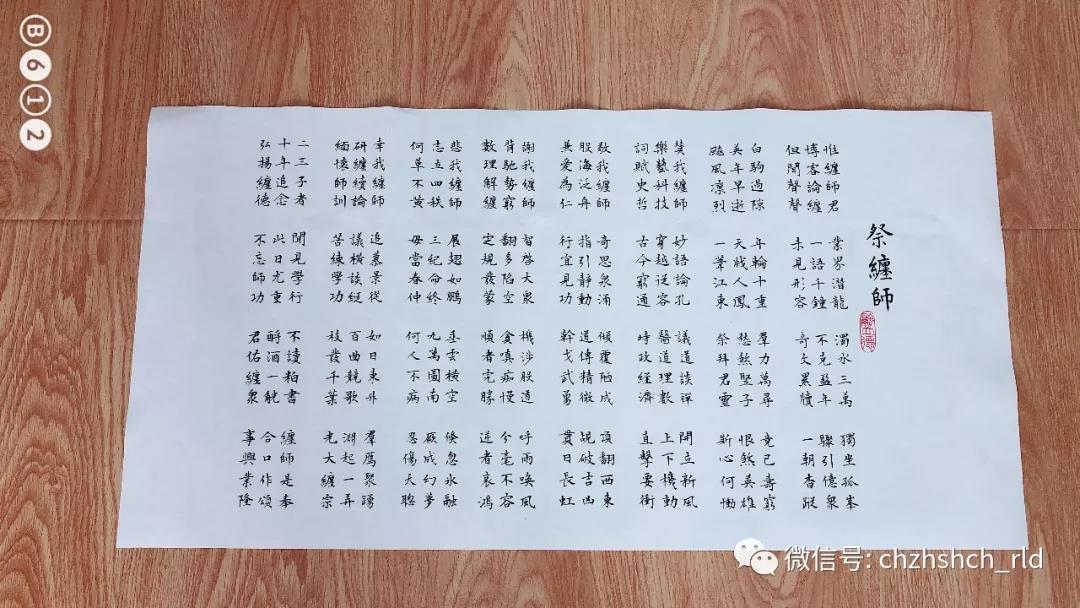 祭纏師
惟纏師君 業界潛龍 濁水三萬 獨坐孤峯
博客論纏 一語千鐘 不克盈年 驟引億衆
但聞聲聲 未見形容 奇文累牘 一朝杳蹤
白駒過隙 年輪十重 羣力萬尋 竟已壽窮
英年早逝 天戕人鳳 愁煞堅子 恨煞英雄
颱風凛烈 一葦江東 祭拜君靈 斯心何慟
我纏師 妙語論孔 議道談禪 開立新風
樂藝科技 穿越從容 醫道理數 上下機動
詞賦史哲 古今窮通 時政經濟 直擊要衝
教我纏師 奇思泉涌 傾覆陋成 頂翻西東
股海泛舟 指引靜動 道傳精微 覘破吉凶
兼愛為仁 行宜見功 幹戈武勇 貫日長虹
謝我纏師 智啓大衆 機涉股道 呼雨喚風
背馳勢窮 翻多陷空 貪嗔痴慢 分毫不容
數理解纏 定規發蒙 順者完勝 逆者哀鴻
悲我纏師 展翅如鵬 垂雲橫空 倏忽氷融
志立四秩 三紀命終 九萬圖南 厥成幻夢
何草不黄 毋當春仲 何人不病 忍傷天聰
幸我纏師 追慕景從 如日東升 羣鷹聚踴
研纏續論 議橫談縱 百曲競歌 湖起一弄
緬懷師訓 苦練學功 枝發千葉 光大纏宗
二三子者 聞見學行 不讀粕書 纏師是奉
十年追念 此日尤重 酹酒一觥 合口作頌
弘揚纏德 不忘師功 君佑纏衆 事興業隆
B612
微信号: chzhshch_rld